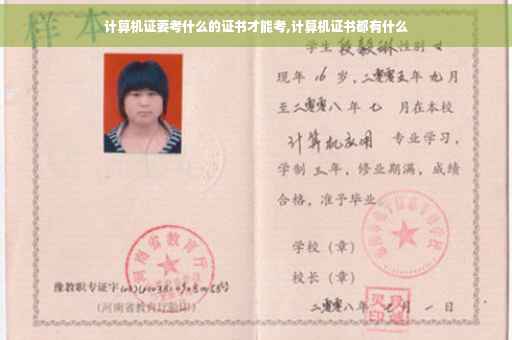 计算机证要考什么的证书才能考,计算机证书都有什么
样本
学生段毅琳性别女
现年16岁,二零零五年九月
至二零零八年七月在本校
计算机应用 专业学习,
学制三年,修业期满,成绩
合格,准予毕业
学校（章）
校长（章）
二零零八年七月一日
河南省教育厅
豫教职专证字
(河南省教育厅验印)